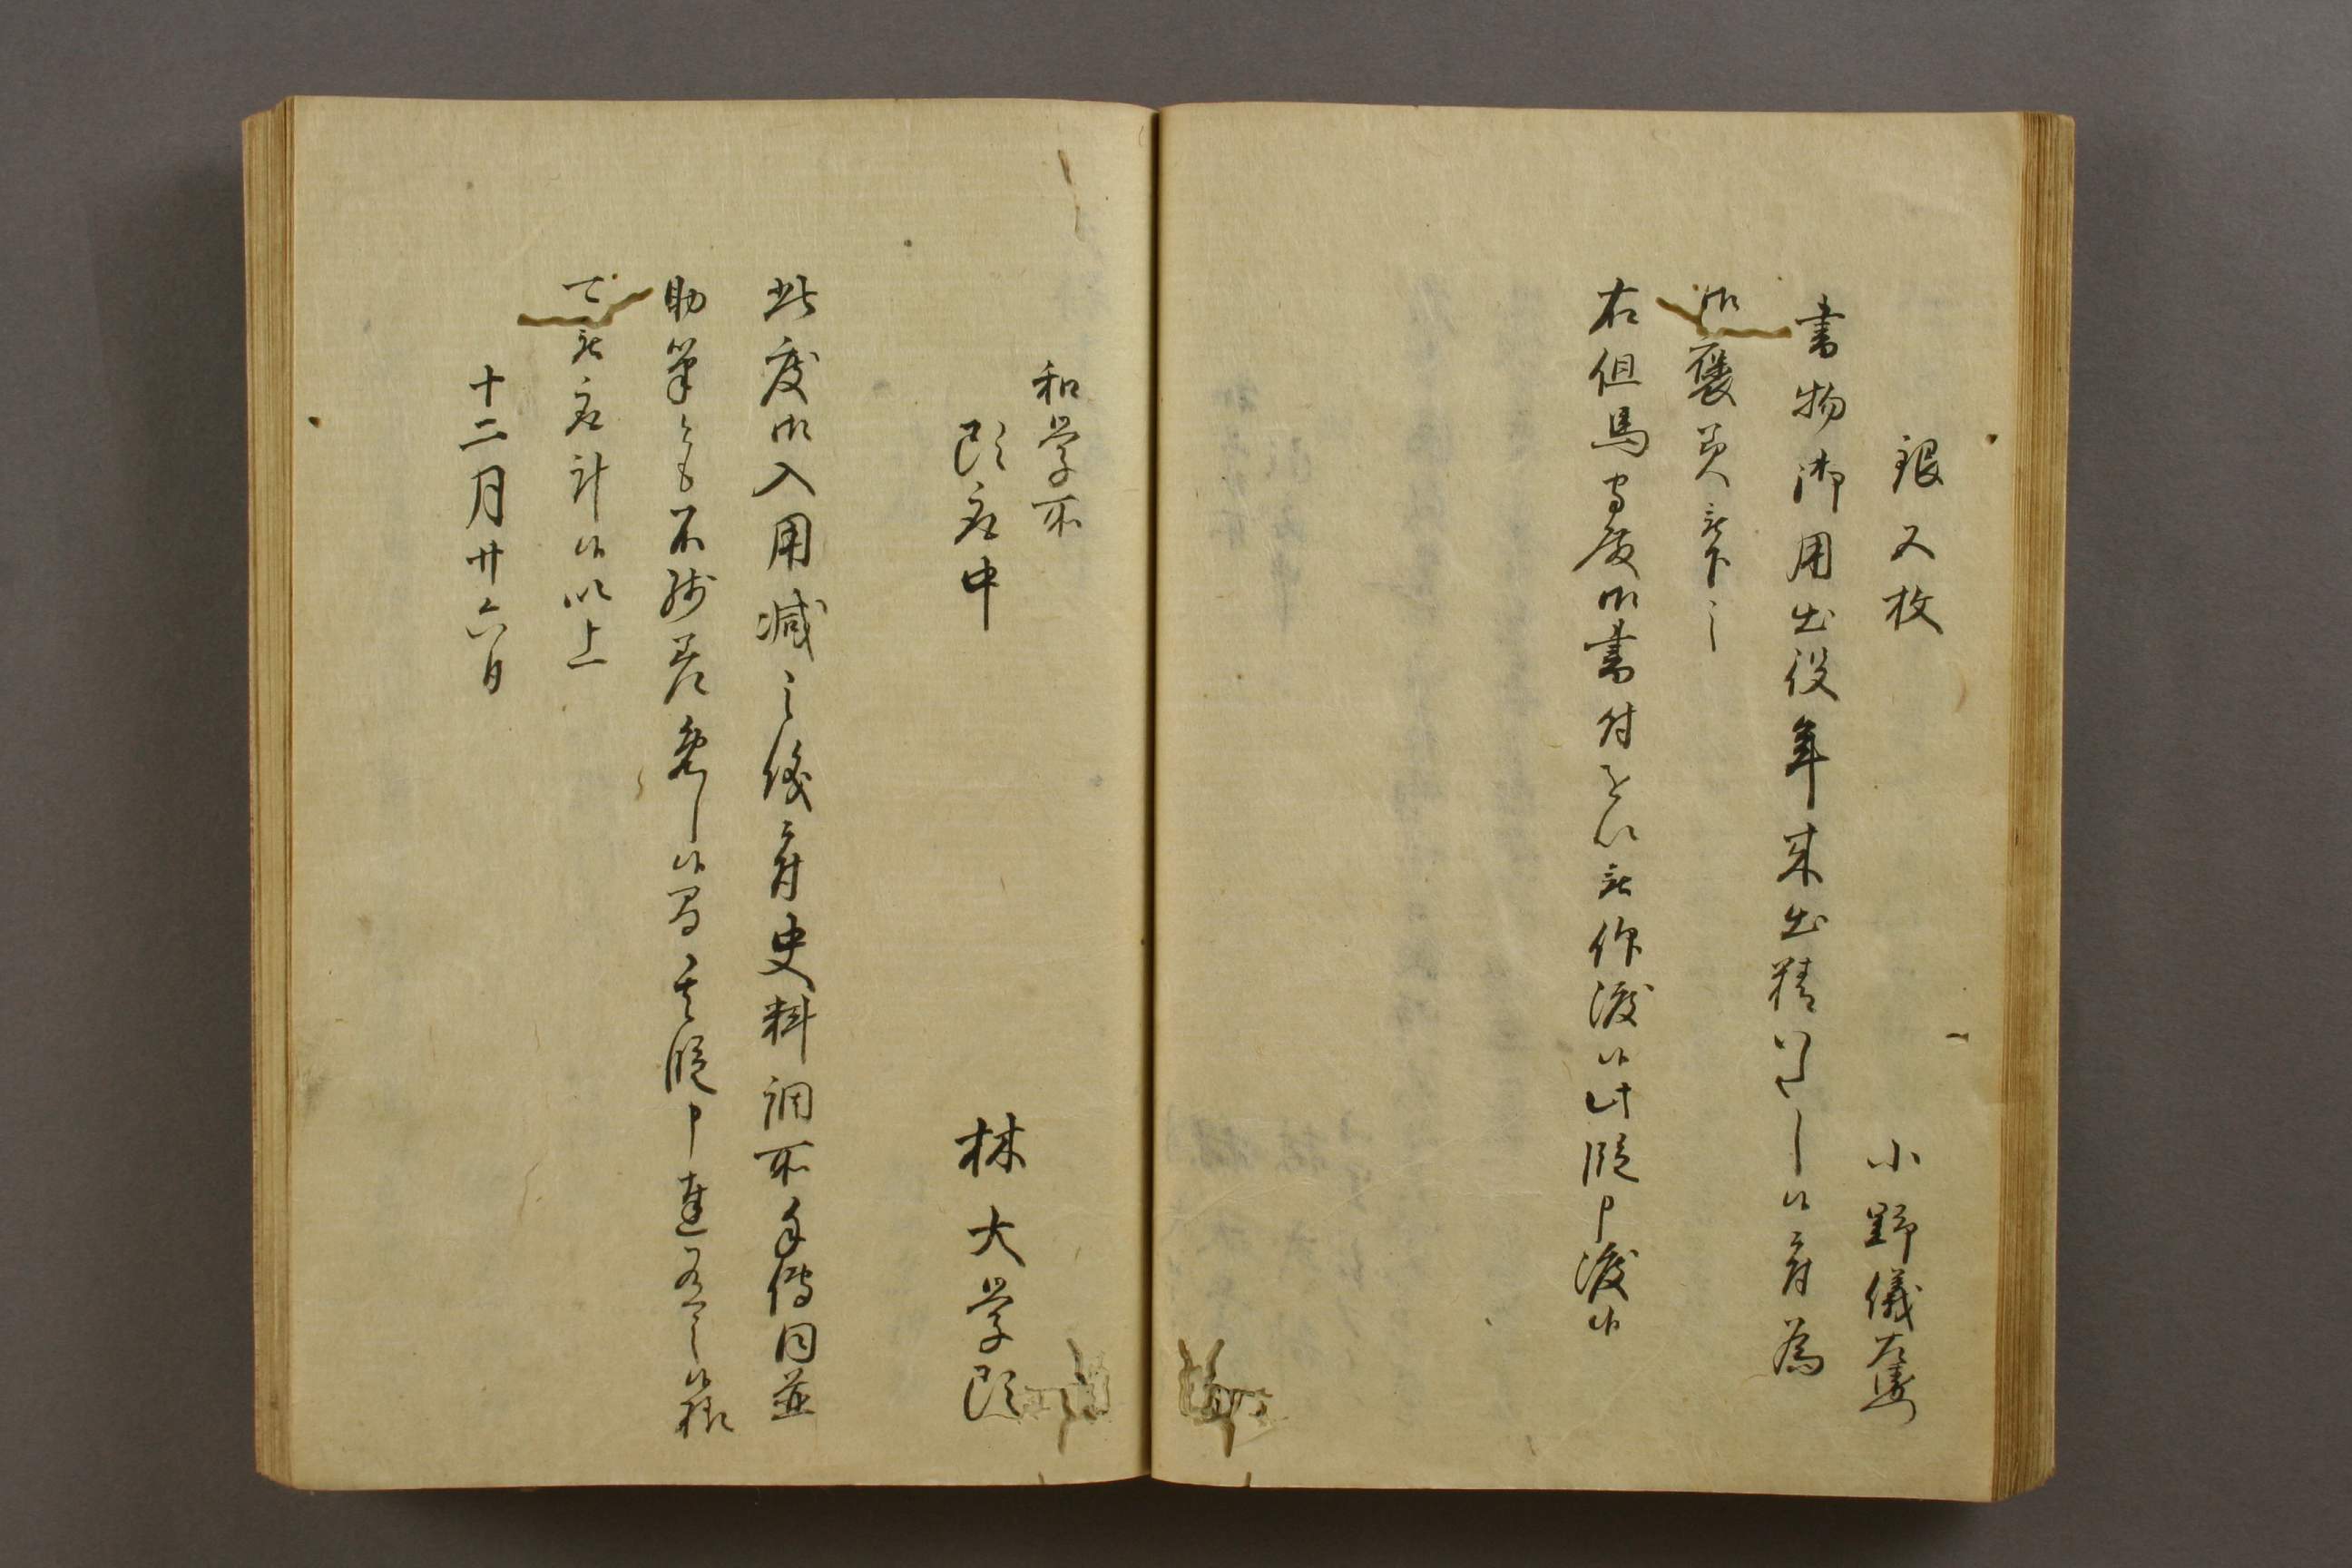 銀五枚
小野儀右衛門
書物御用出役年来出精いたし候ニ付為
御褒美被下之
右但馬守殿御書付を以被仰渡候此段申渡候
和学所
頭衆中
林大学頭
此度御入用減之儀ニ付史料調所手伝同並
助筆とも不残差免し候間其段申達有之候様
可被届計候以上
十二月廿六日